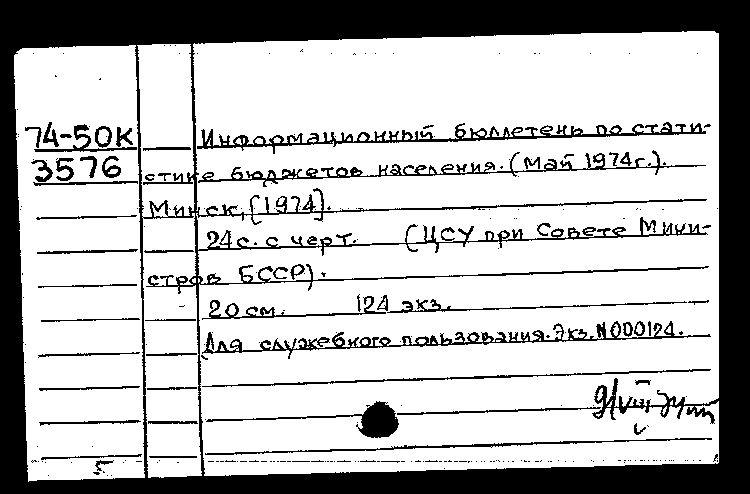 74-50К Информационный бюллетень по стати-
3576 стике бюджетов населения. (Май 1974г.).
Минск, [1974].
24с. с черт. (ЦСУ при Совете Мини-
стров БССР).
20 см. 124 экз.
Для служебного пользования. Экз. N000124.
9/VIII